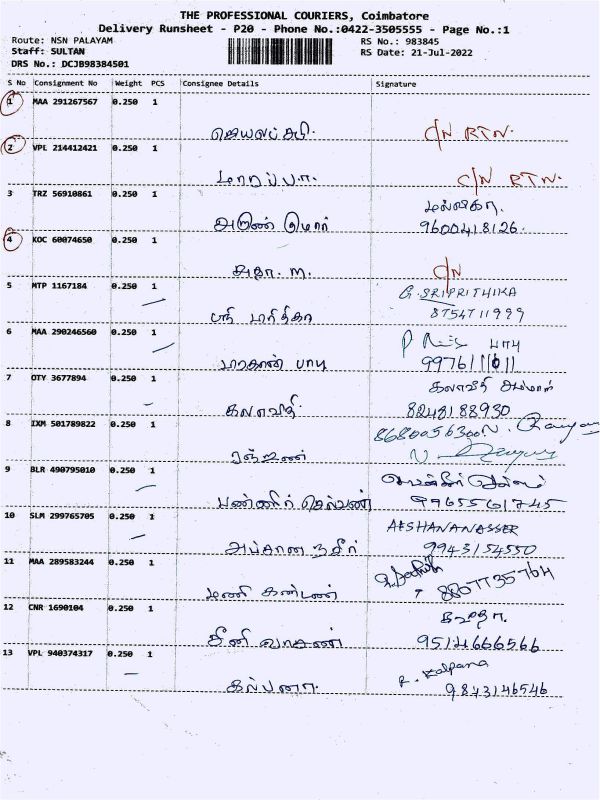 THE PROFESSIONAL COURIERS, Coimbatore
Delivery Runsheet - P20 - Phone No.:0422-3505555 - Page No.:1
Route: NSN PALAYAM RS No.: 983845
Staff: SULTAN RS Date: 21-Jul-2022
DRS No.: DCJB98384501
S No Consignment No Weight PCS Consignee Details Signature
1 MAA 291267567 0.250 1
C/N RTN.
2 VPL 214412421 0.250 1
மாறப்பா. C/N RTN.
3 TRZ 56910861 0.250 1 மல்லிகா.
அருண் 9600418126.
4 KOC 60074650 0.250 1
M. C/N
5 MTP 1167184 0.250 1 G. SRIPRITHIKA
ஸ்ரீ பிரித்திகா 8754711999
6 MAA 290246560 0.250 1 பாபு
பாபு
7 OTY 3677894 0.250 1 கலாவதி அம்மாள்
கலாவதி 8248188930
8 IXM 501789822 0.250 1 8680056300
ரஞ்சன்
9 BLR 490795010 0.250 1
பன்னீர் செல்வன் 9965561745
10 SLM 299765705 0.250 1 AFSHANANASSER
அப்சானா நசீர் 9943154550
11 MAA 289583244 0.250 1
மணி கண்டன் 8807735764
12 CNR 1690104 0.250 1
சீனி வாசன் 9514666566
13 VPL 940374317 0.250 1 R. Kalpana
கல்பனா. 9843146546